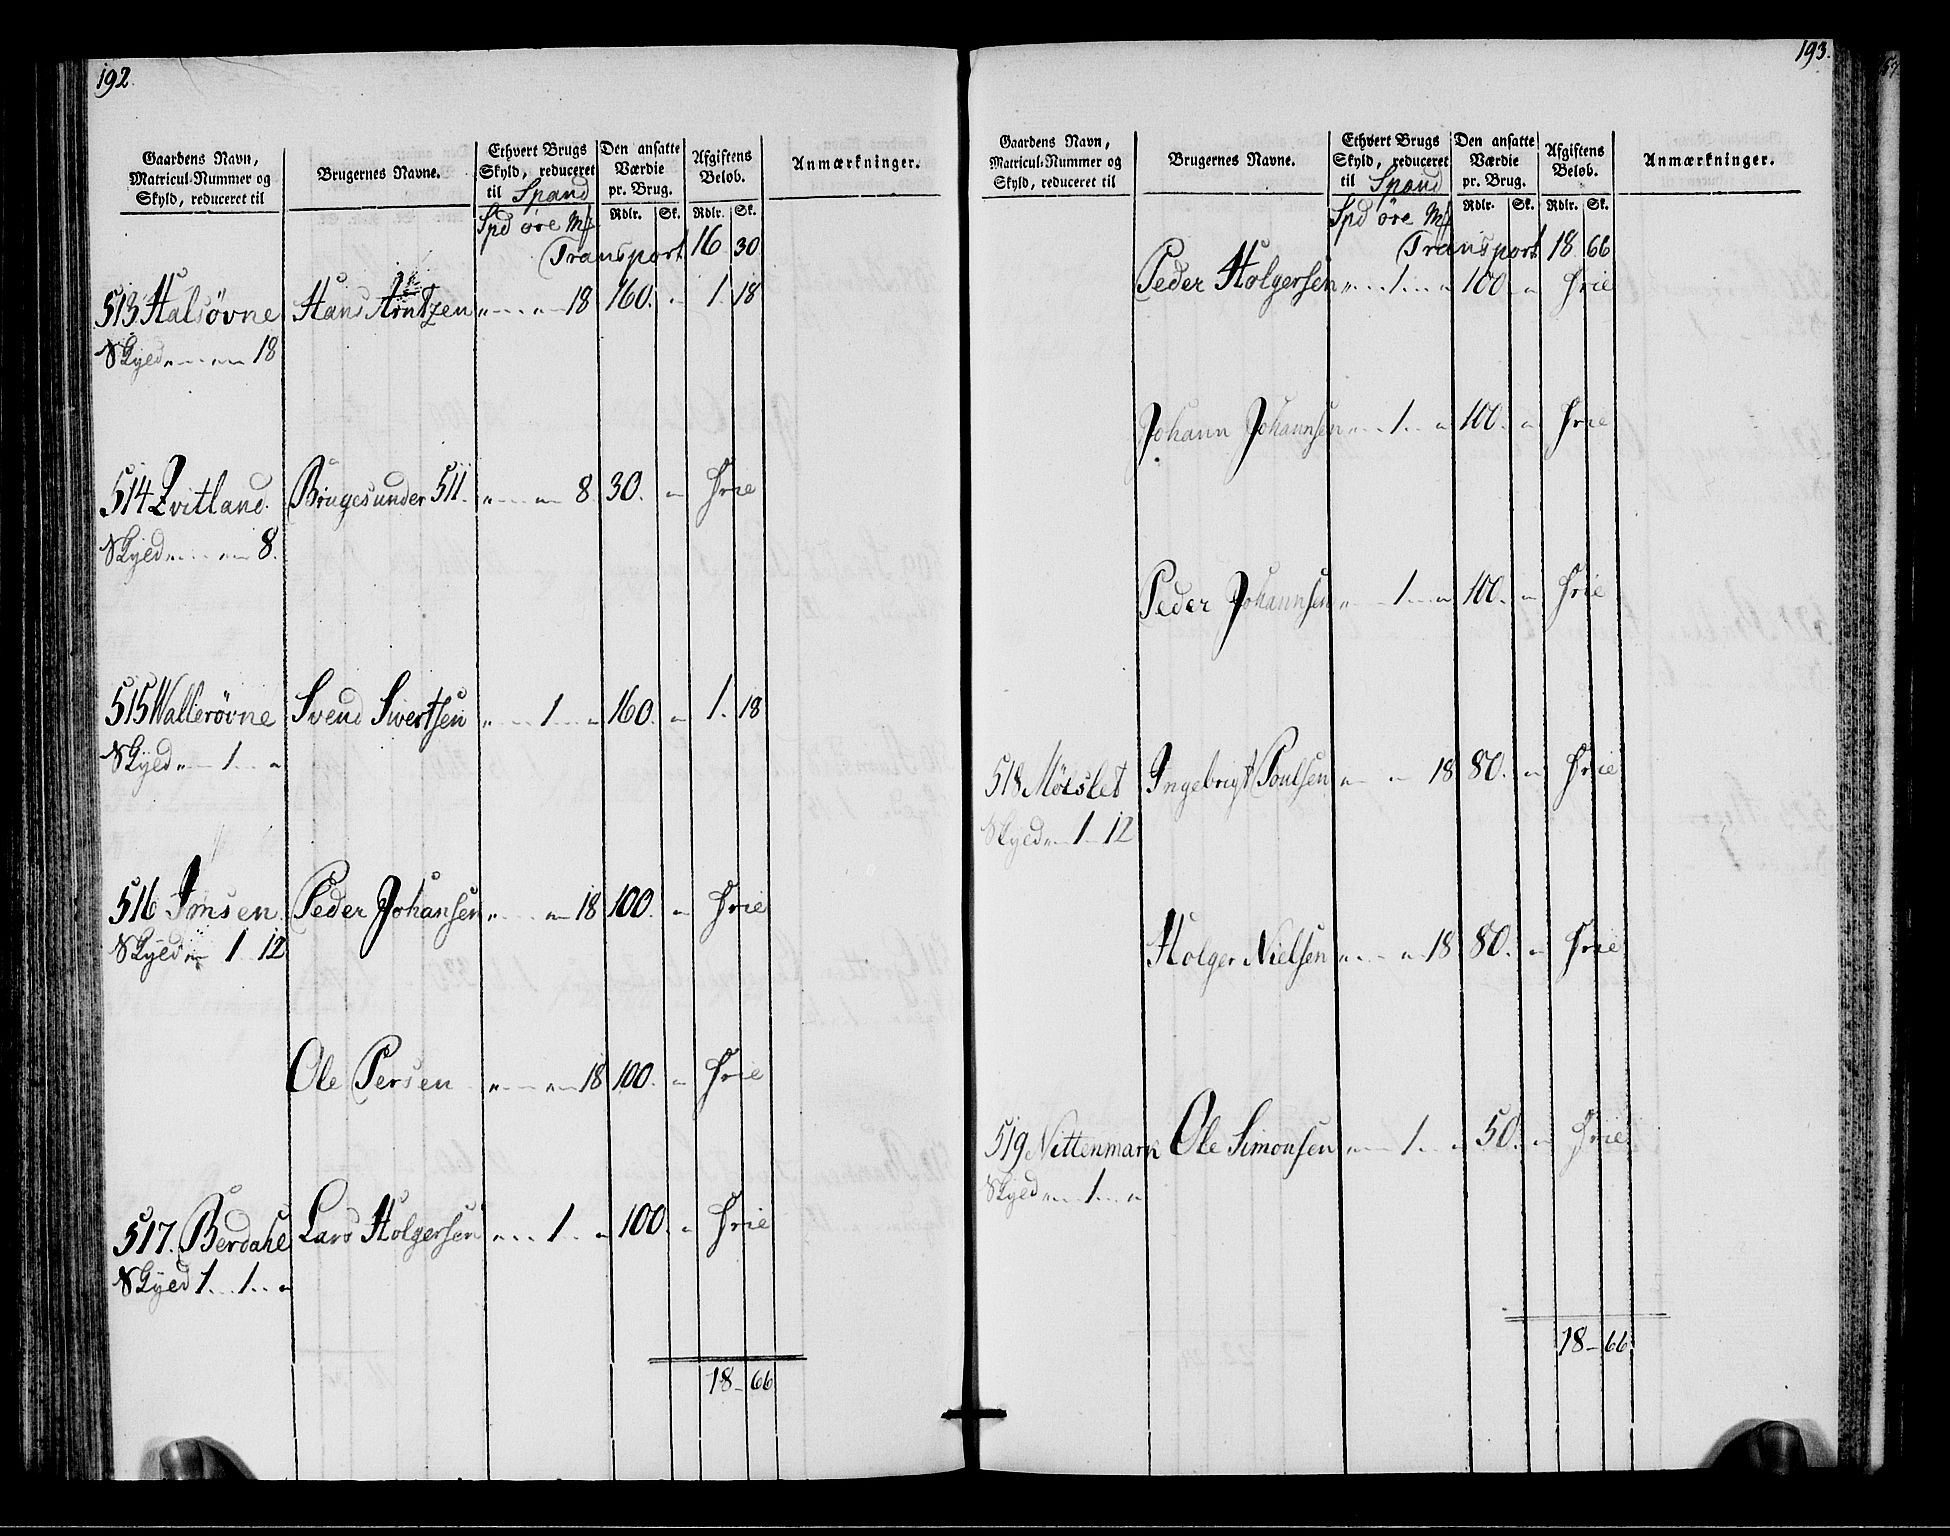 192.
Gaardens Navn,
Matricul-Nummer og
Skyld, reduceret til
Brugernes Navne.
Ethvert Brugs
Skyld, reduceret
til Spand
Den ansatte
Værdie
pr. Brug.
Afgiftens
Beløb.
Anmærkninger.
Spd öre Mk
Rdlr. Sk. Rdlr. Sk.
Transport 16 30
513 Halsövne Hans Arntzen " " 18 160. " 1. 18
Skyld " " 18
514 Qvitland. Bruges under 511. " " 8 30. " Frie
Skyld " " 8.
515 Wallerövne Svend Sivertsen " 1 " 160. " 1. 18
Skyld " 1 "
516 Imsen Peder Johansen " " 18 100. " Frie
Skyld " 1 12
Ole Persen " " 18 100. " Frie
517. Berdahl Lars Holgersen " 1 " 100. " Frie
Skyld 1 1 "
18 - 66
193.
Gaardens Navn,
Matricul-Nummer og
Skyld, reduceret til
Brugernes Navne.
Ethvert Brugs
Skyld, reduceret
til Spand
Den ansatte
Værdie
pr. Brug.
Afgiftens
Beløb.
Anmærkninger.
Spd öre Mk
Rdlr. Sk. Rdlr. Sk.
Transport 18 66
Peder Holgersen " 1 " 100. " Frie
Johann Johannsen " 1 " 100. " Frie
Peder Johannsen " 1 " 100. " Frie
518 Möeslet Ingebrigt Poulsen " " 18 80. " Frie
Skyld " 1 12
Holger Nielsen " " 18 80. " Frie
519 Nittenmark Ole Simonsen " 1 " 50. " Frie
Skyld " 1 "
18 - 66.